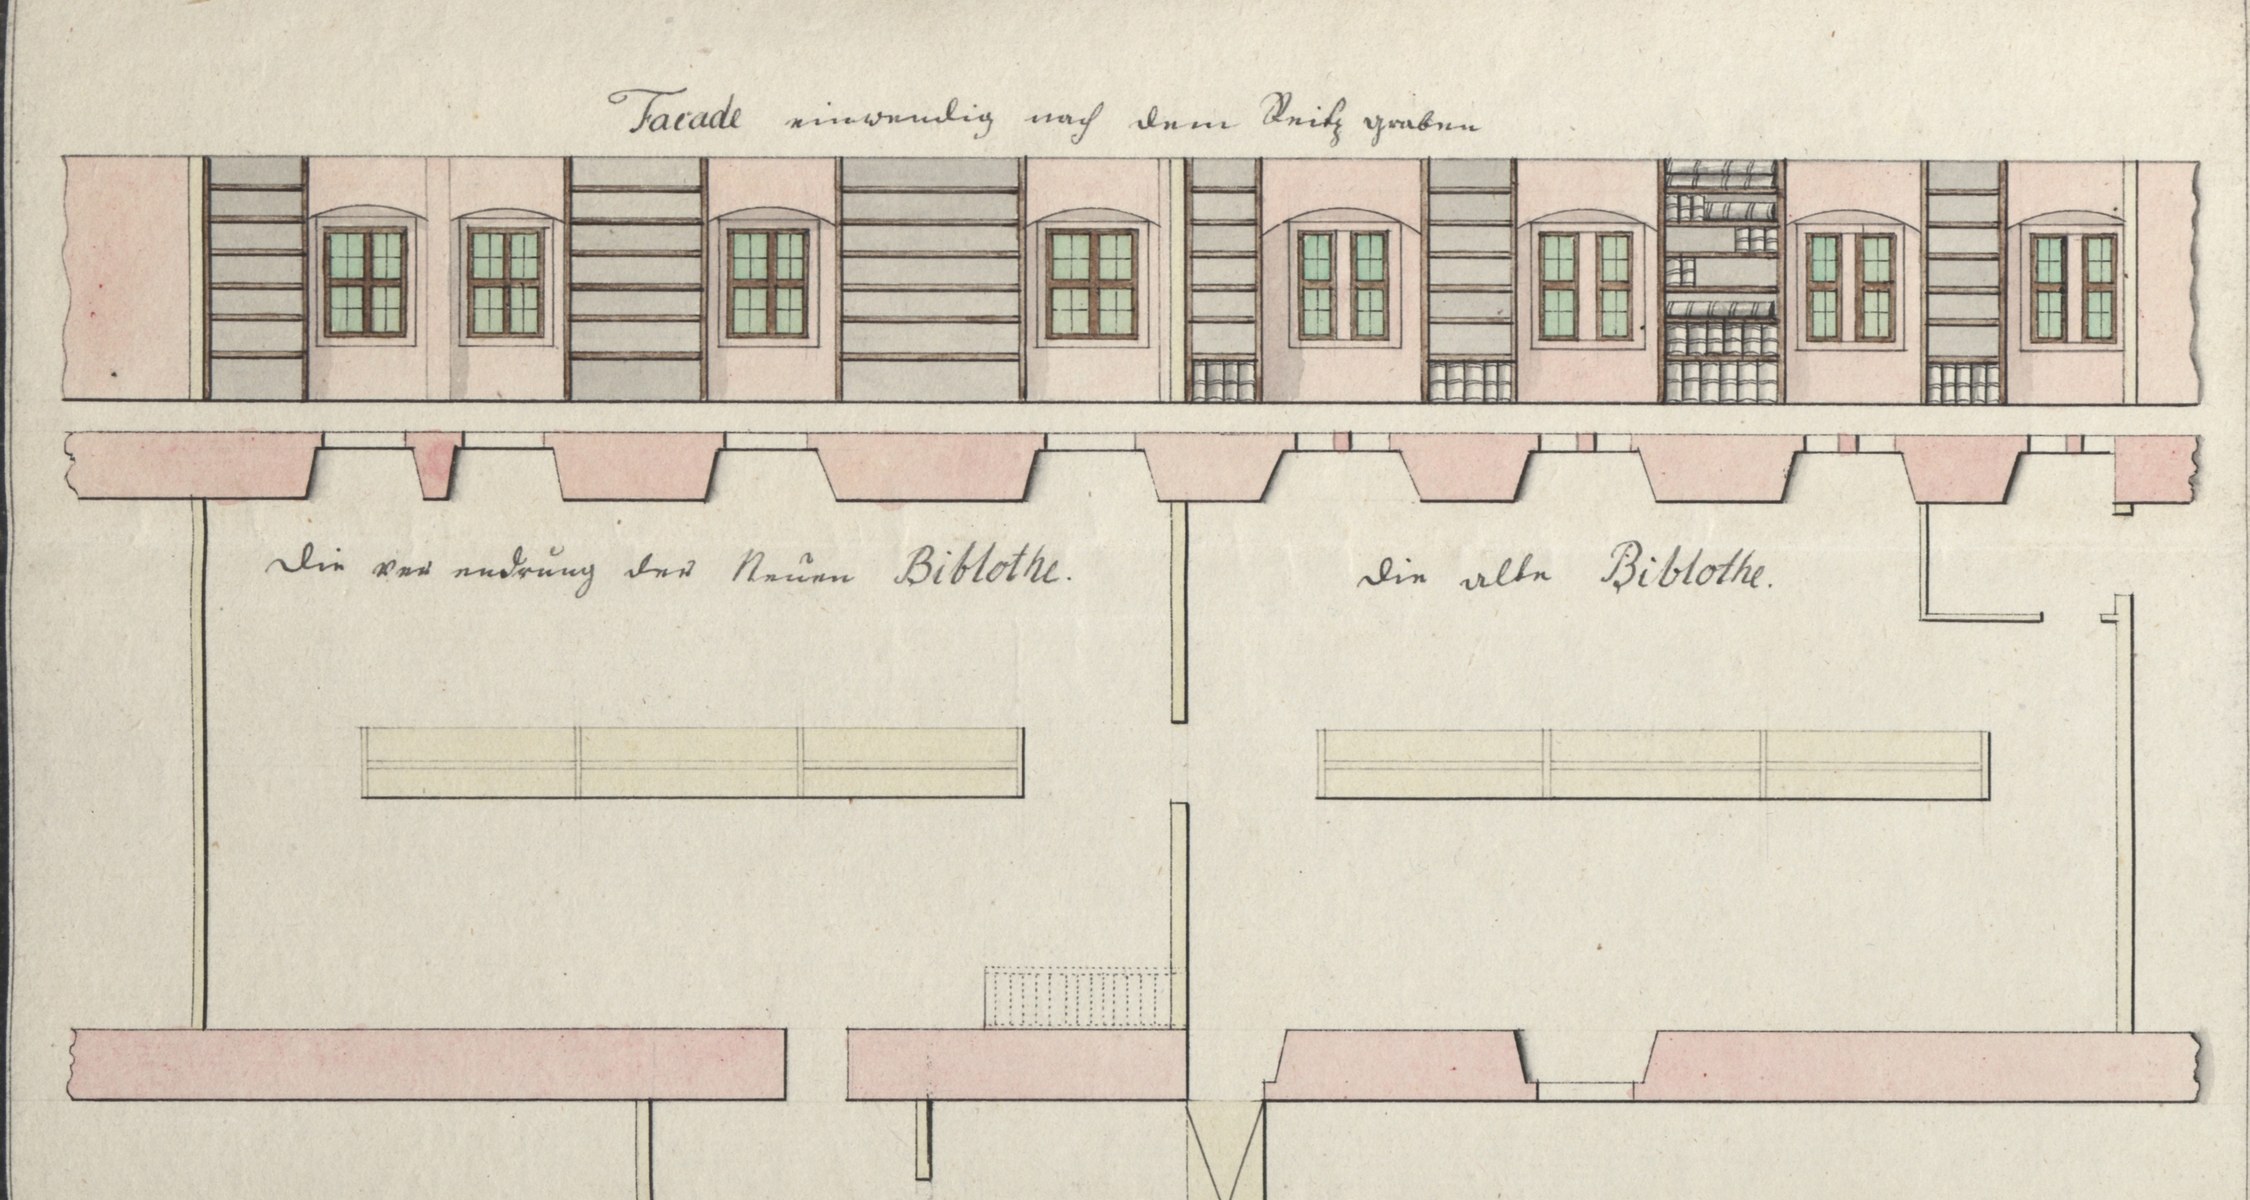 Facade einwendig nach dem Reitz graben
Die ver endrung der Neuen Biblothe.
die alte Biblothe.